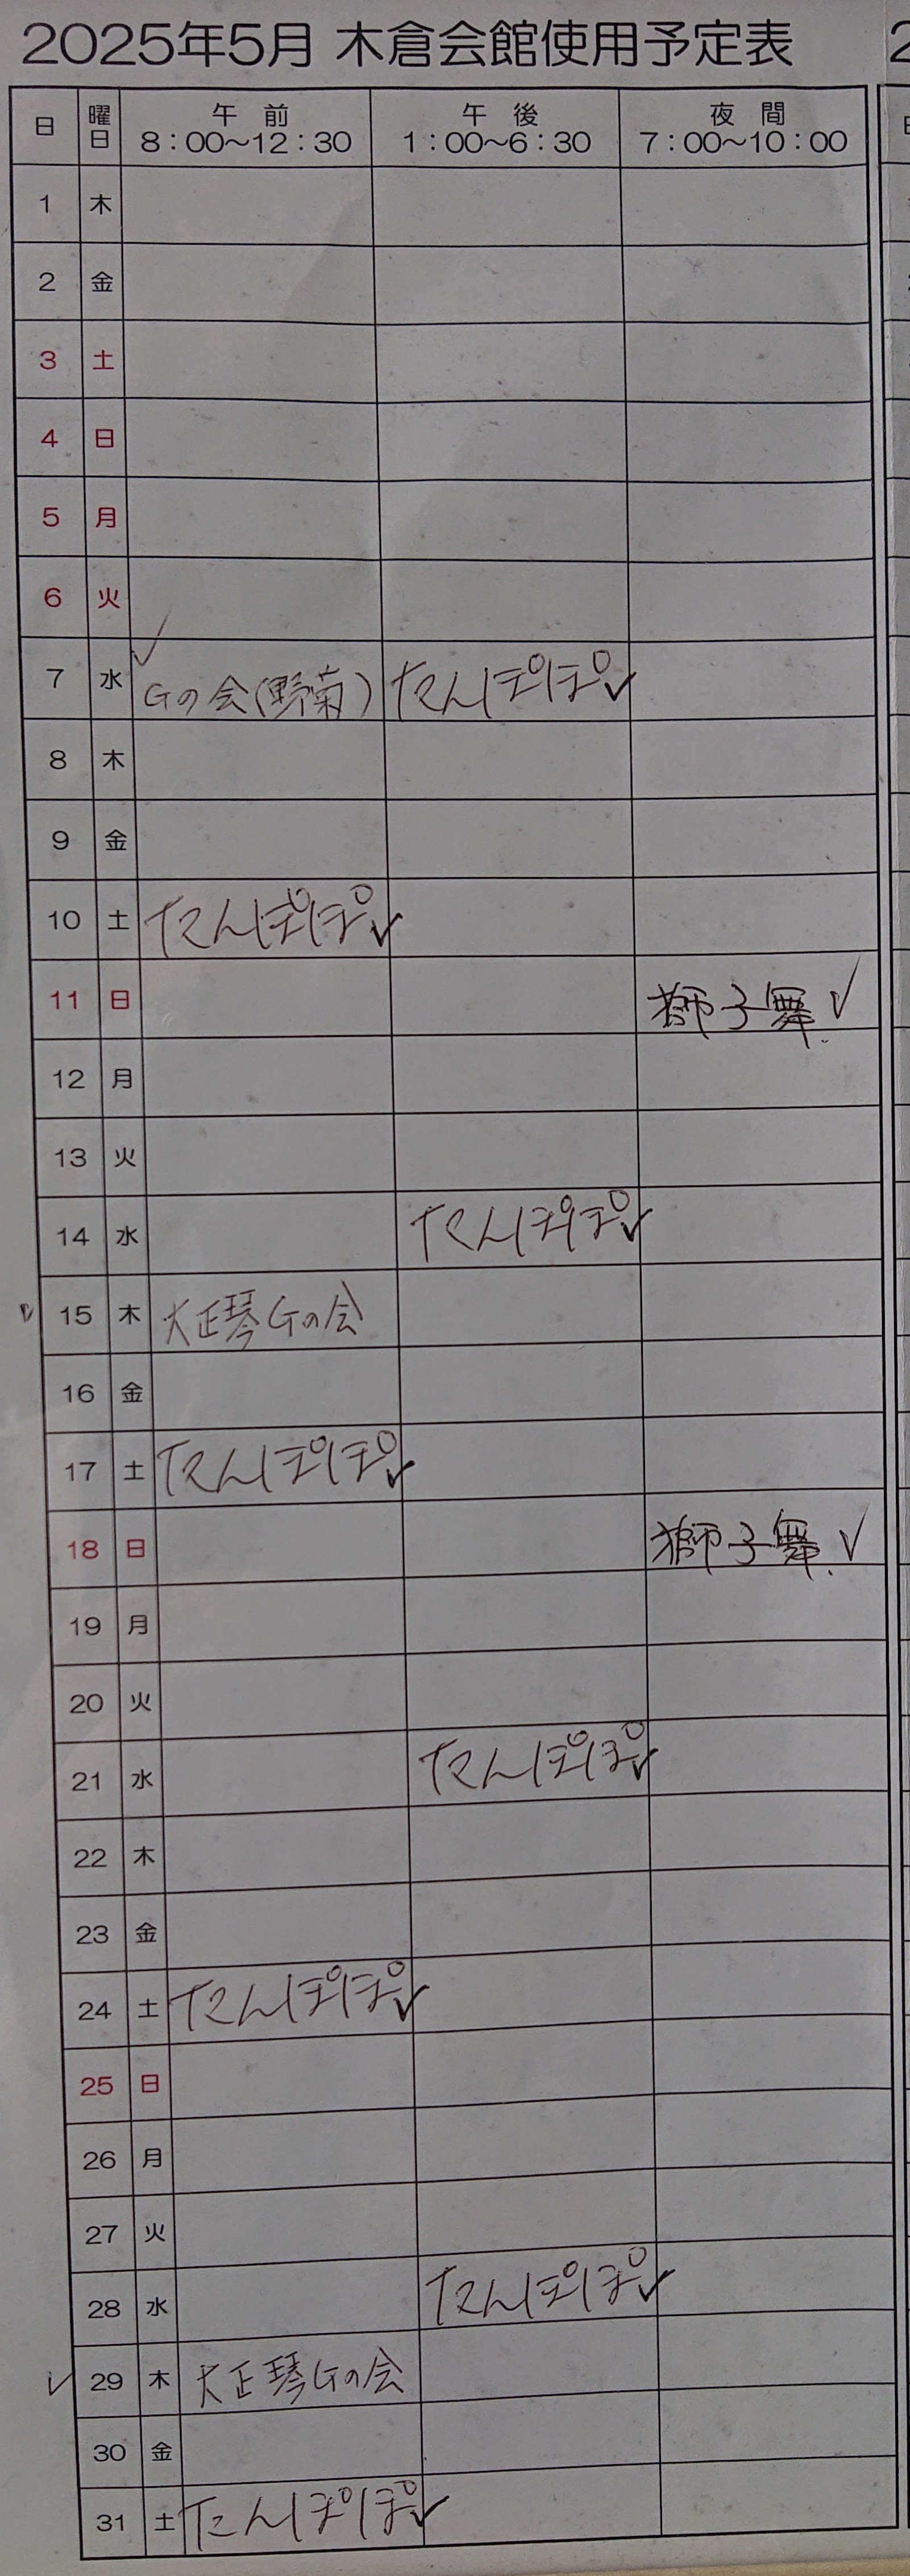 2025年5月 木倉会館使用予定表
日 曜日 午前 8:00～12:30 午後 1:00～6:30 夜間 7:00～10:00
1 木
2 金
3 土
4 日
5 月
6 火
7 水 Gの会(野菊) たんぽぽ
8 木
9 金
10 土 たんぽぽ
11 日 獅子舞
12 月
13 火
14 水 たんぽぽ
15 木 大正琴Gの会
16 金
17 土 たんぽぽ
18 日 獅子舞
19 月
20 火
21 水 たんぽぽ
22 木
23 金
24 土 たんぽぽ
25 日
26 月
27 火
28 水 たんぽぽ
29 木 大正琴Gの会
30 金
31 土 たんぽぽ